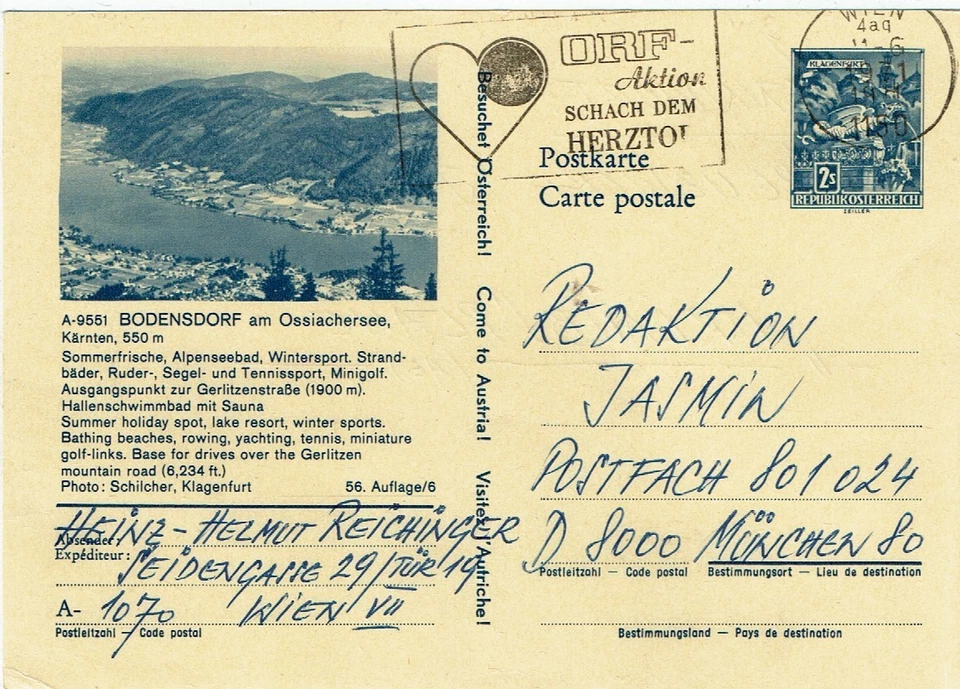 ORF-
Aktion
SCHACH DEM
HERZTO
WIEN
KLAGENFURT
2s
REPUBLIK ÖSTERREICH
ZEILLER
Postkarte
Carte postale
Besuchet Österreich! Come to Austria! Visitez l'Autriche!
A-9551 BODENSDORF am Ossiachersee,
Kärnten, 550 m
Sommerfrische, Alpenseebad, Wintersport. Strand-
bäder, Ruder-, Segel- und Tennissport, Minigolf.
Ausgangspunkt zur Gerlitzenstraße (1900 m).
Hallenschwimmbad mit Sauna
Summer holiday spot, lake resort, winter sports.
Bathing beaches, rowing, yachting, tennis, miniature
golf-links. Base for drives over the Gerlitzen
mountain road (6,234 ft.)
Photo: Schilcher, Klagenfurt 56. Auflage/6
HEINZ-HELMUT REICHINGER
Absender:
Expéditeur: SEIDENGASSE 29/TÜR 19
A- 1070 WIEN VII
Postleitzahl — Code postal
REDAKTION
JASMIN
POSTFACH 801024
D 8000 MÜNCHEN 80
Postleitzahl — Code postal Bestimmungsort — Lieu de destination
Bestimmungsland — Pays de destination